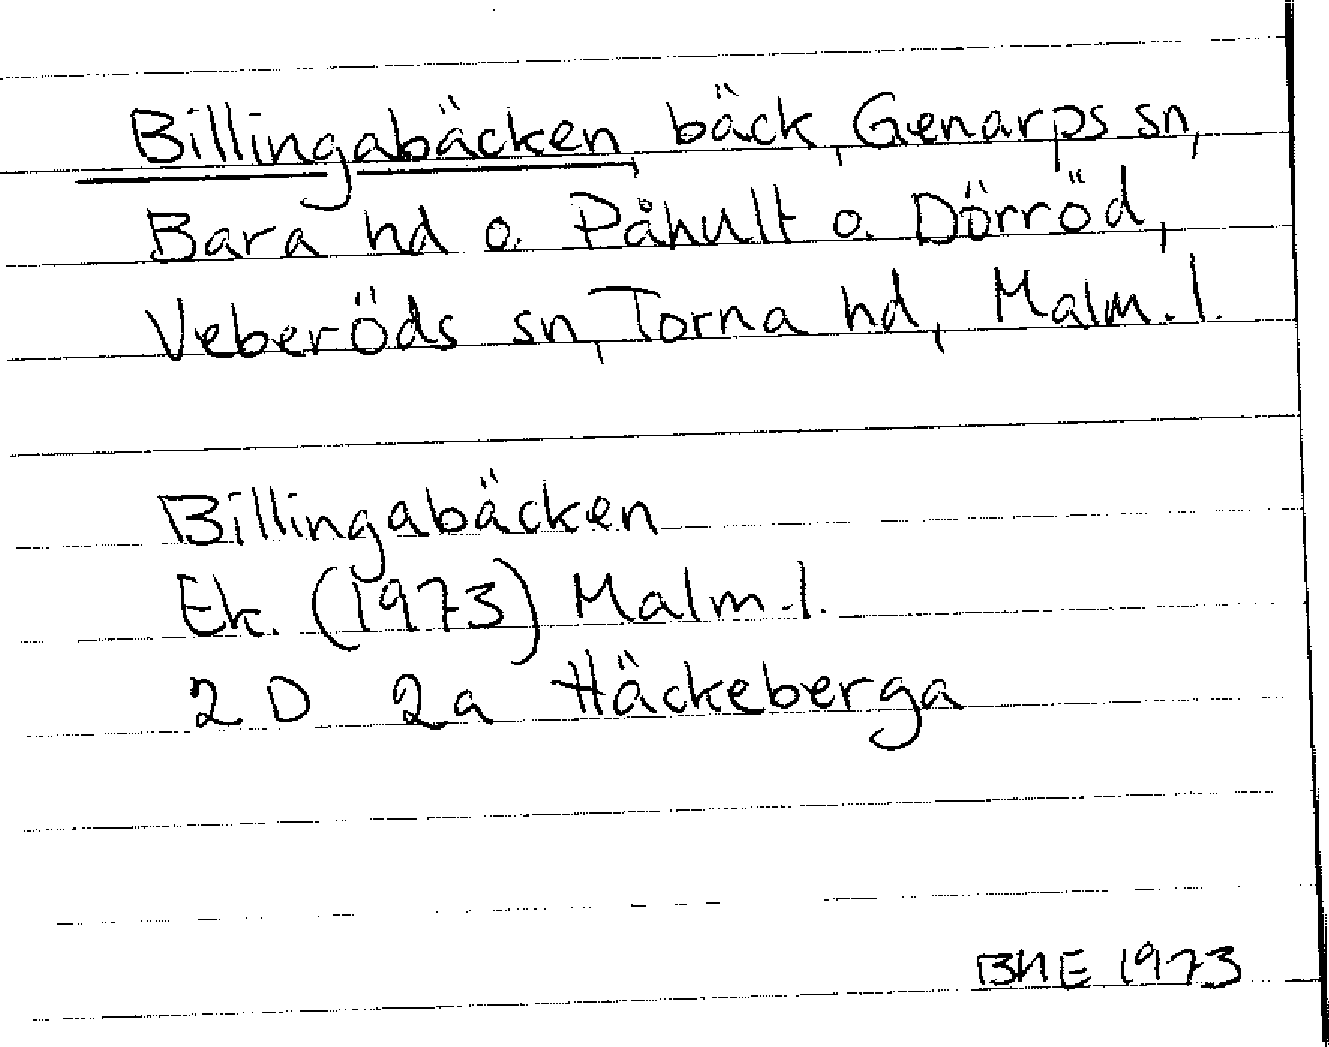 Billingabäcken, bäck, Genarps sn,
Bara hd o. Påhult o. Dörröd,
Veberöds sn, Torna hd, Malm. l.
Billingabäcken
Ek. (1973) Malm. l.
2 D 2a Häckeberga
BHE 1973